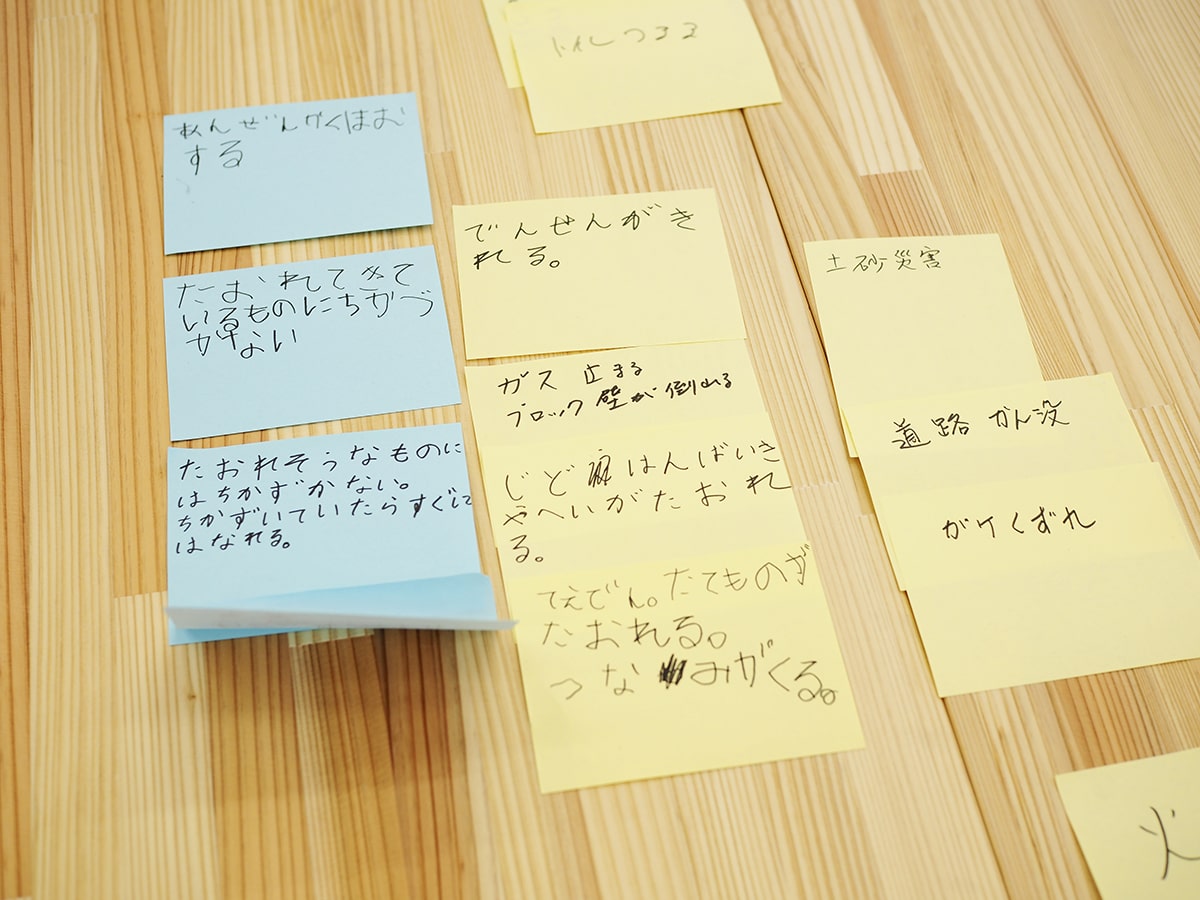 あんぜんかくほお
する
たおれてきて
いるものにちかづ
かない
たおれそうなものに
はちかずかない。
ちかずいていたらすぐに
はなれる。
でんせんがき
れる。
ガス 止まる
ブロック 壁が 倒れる
じどはんばいき
やへいがたおれ
る。
てえでん。たてものが
たおれる。
つなみがくる。
土砂災害
道路 かん没
がけくずれ
火